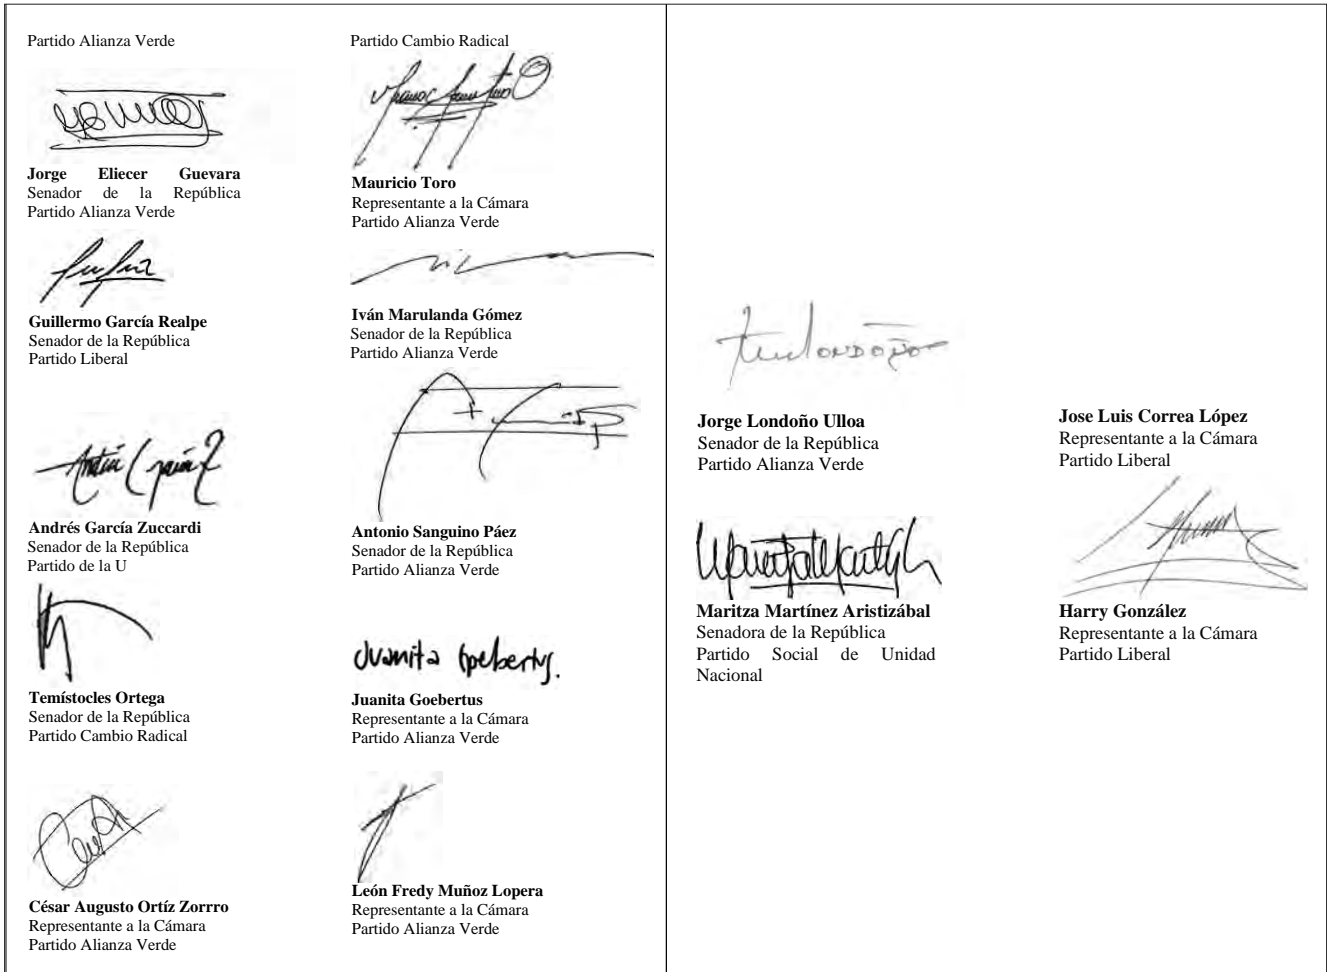 Partido Alianza Verde
Jorge Eliecer Guevara
Senador de la República
Partido Alianza Verde
Guillermo García Realpe
Senador de la República
Partido Liberal
Andrés García Zuccardi
Senador de la República
Partido de la U
Temístocles Ortega
Senador de la República
Partido Cambio Radical
César Augusto Ortíz Zorrro
Representante a la Cámara
Partido Alianza Verde
Partido Cambio Radical
Mauricio Toro
Representante a la Cámara
Partido Alianza Verde
Iván Marulanda Gómez
Senador de la República
Partido Alianza Verde
Antonio Sanguino Páez
Senador de la República
Partido Alianza Verde
Juanita Goebertus.
Juanita Goebertus
Representante a la Cámara
Partido Alianza Verde
León Fredy Muñoz Lopera
Representante a la Cámara
Partido Alianza Verde
Londoño
Jorge Londoño Ulloa
Senador de la República
Partido Alianza Verde
Maritza Martínez Aristizábal
Senadora de la República
Partido Social de Unidad
Nacional
Jose Luis Correa López
Representante a la Cámara
Partido Liberal
Harry González
Representante a la Cámara
Partido Liberal